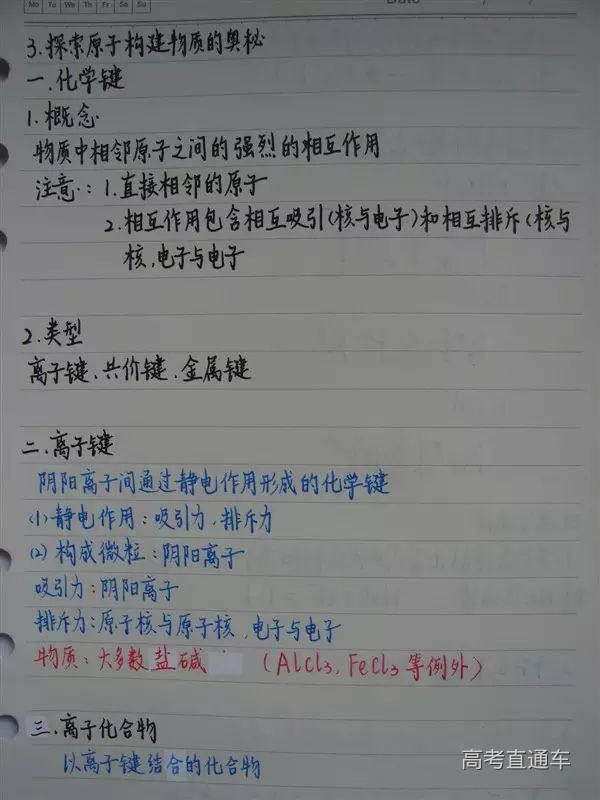 Mo Tu We Th Fr Sa Su
Date / /
3.探索原子构建物质的奥秘
一.化学键
1.概念
物质中相邻原子之间的强烈的相互作用
注意:1.直接相邻的原子
2.相互作用包含相互吸引(核与电子)和相互排斥(核与
核,电子与电子
2.类型
离子键、共价键、金属键
二.离子键
阴阳离子间通过静电作用形成的化学键
(1)静电作用:吸引力、排斥力
(2)构成微粒:阴阳离子
吸引力:阴阳离子
排斥力:原子核与原子核,电子与电子
物质:大多数盐碱 (AlCl3,FeCl3等例外)
三.离子化合物
以离子键结合的化合物
高考直通车